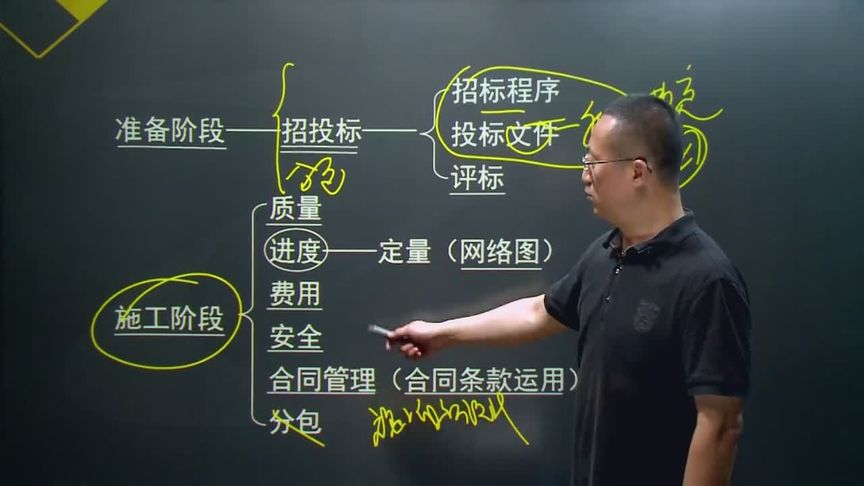 招标程序
准备阶段 招投标 投标文件
分包
评标
质量
进度 定量（网络图）
费用
施工阶段
安全
合同管理（合同条款运用）
分包